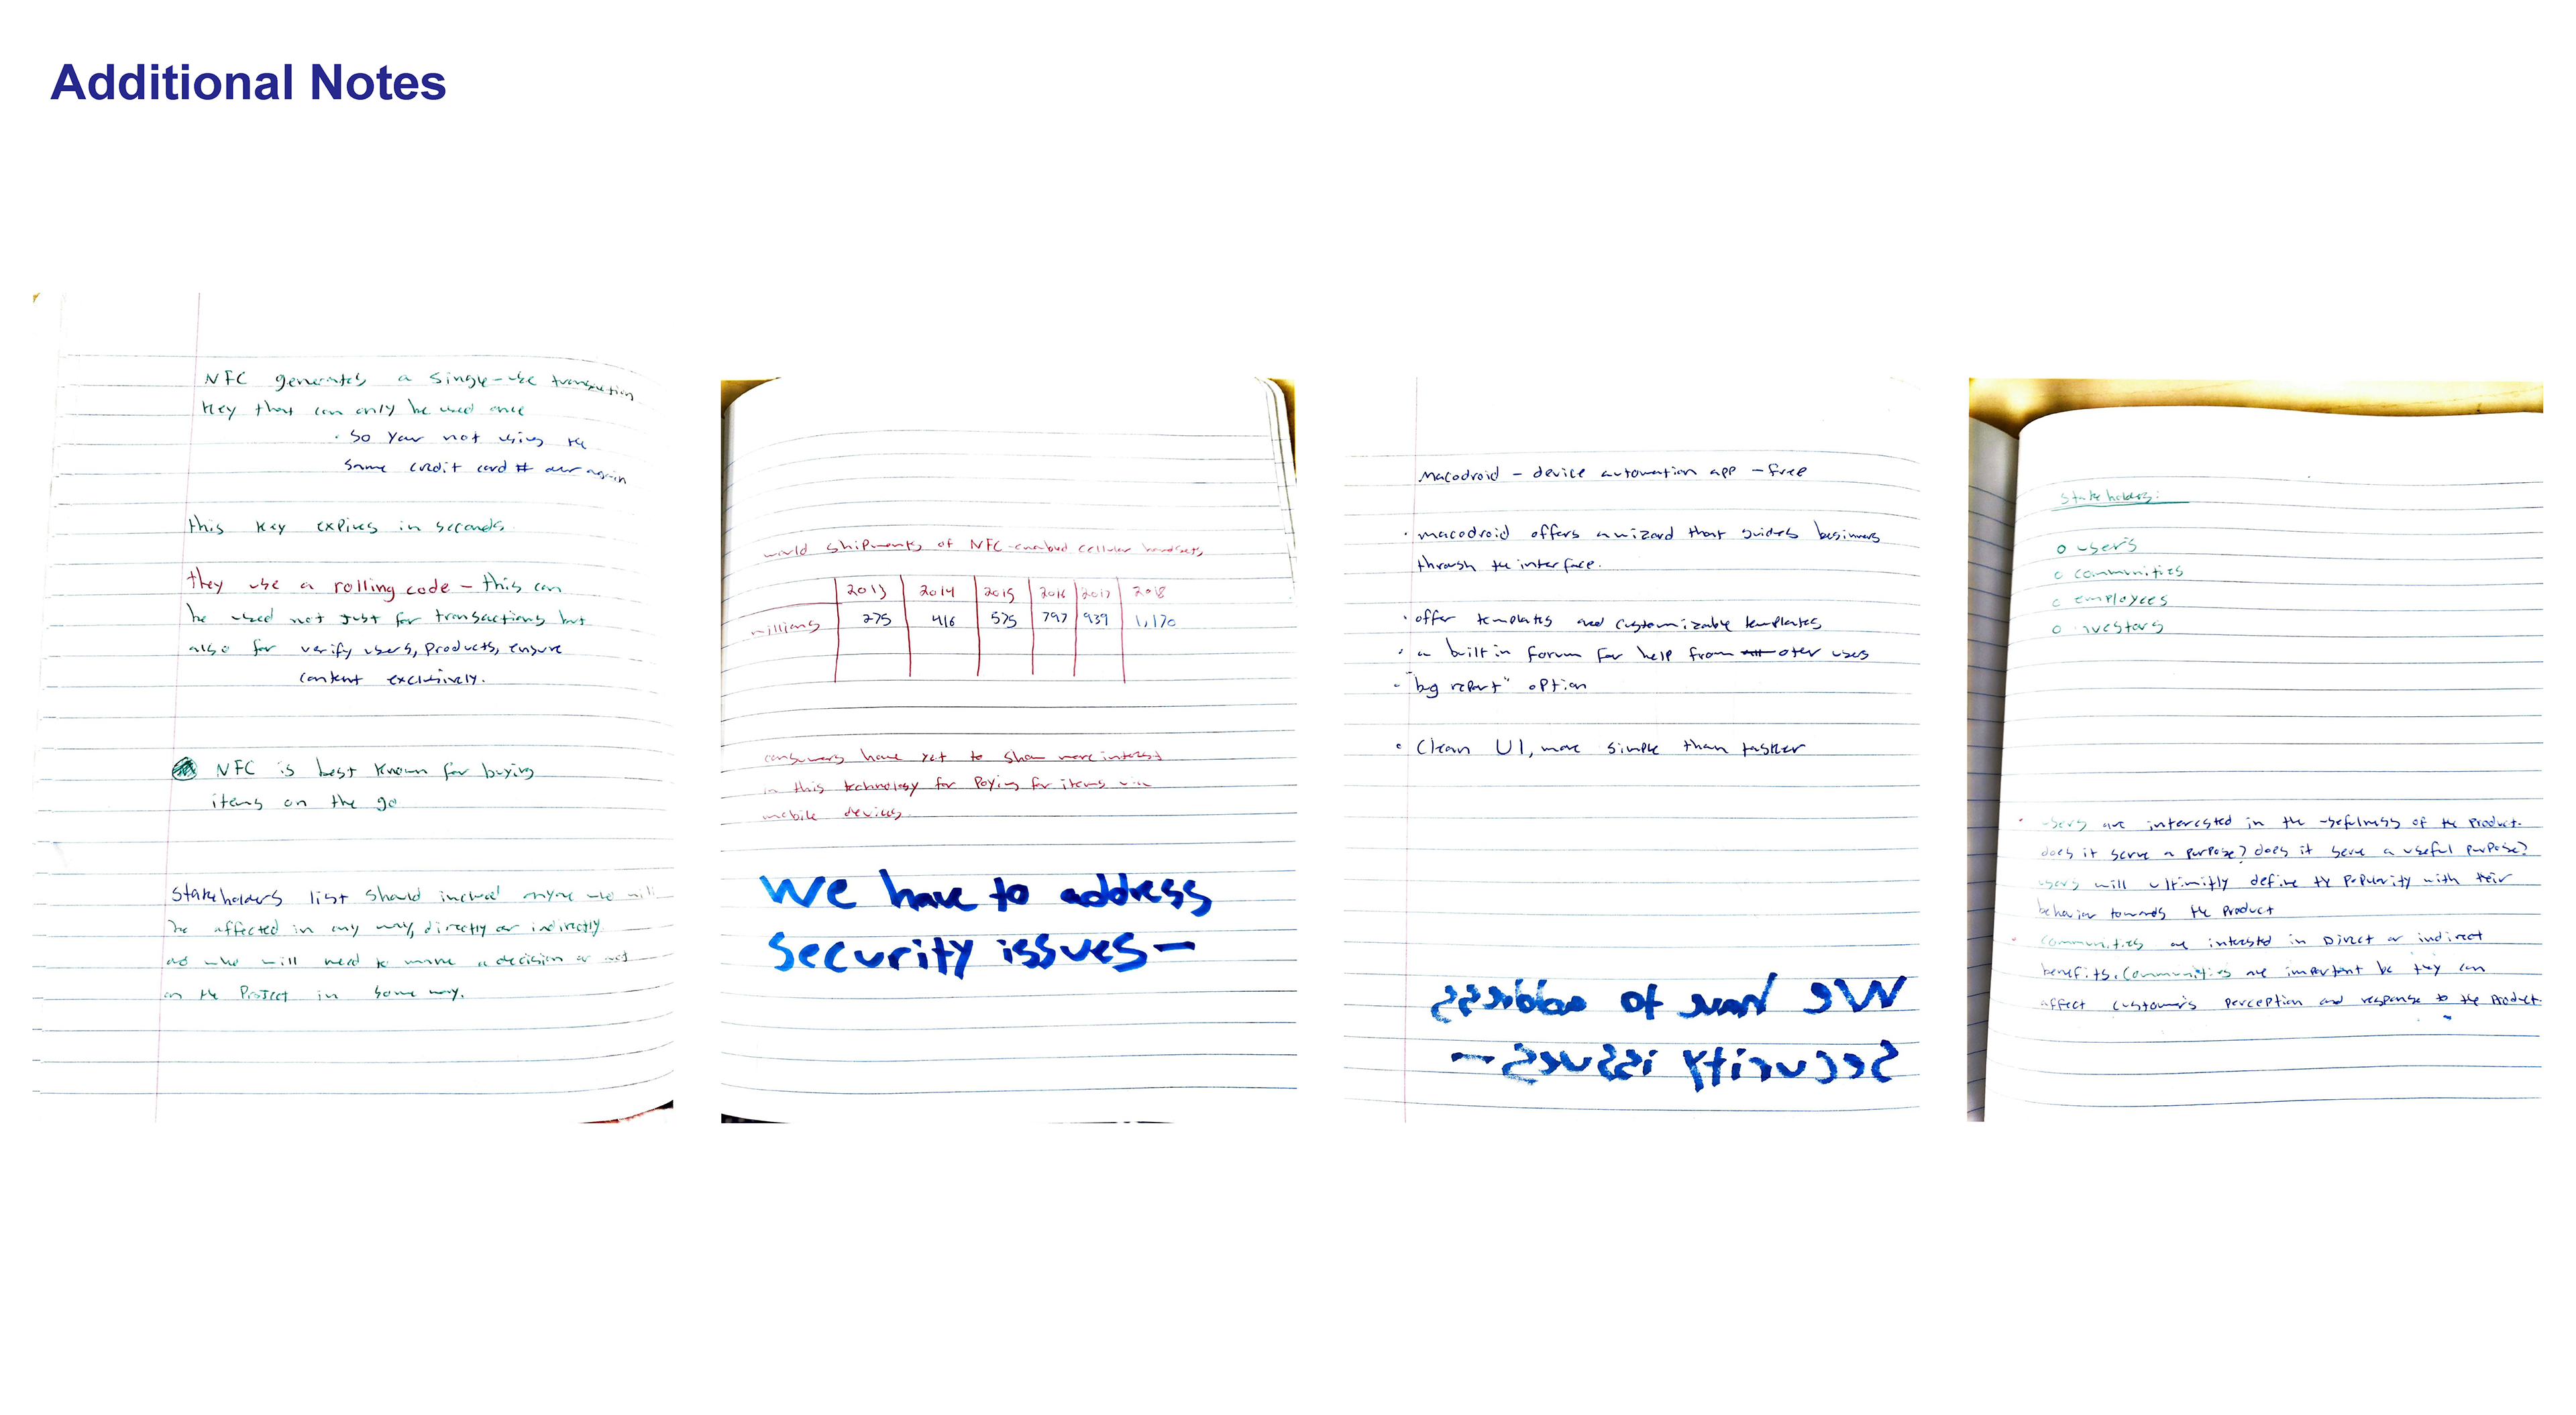 Additional Notes
NFC generates a single-use transaction
key that can only be used once
· So your not using the
same credit card # over again
this key expires in seconds
they use a rolling code - this can
be used not just for transactions but
also for verify users, products, ensure
content exclusively.
NFC is best known for buying
items on the go
Stakeholders list should include anyone who will
be affected in any way, directly or indirectly
who will need to make a decision or act
on the project in some way.
world shipments of NFC-enabled cellular handsets
2013 2014 2015 2016 2017 2018
millions 275 416 575 797 939 1,170
consumers have yet to show more interest
in this technology for paying for items
mobile devices
We have to address
security issues-
Macodroid - device automation app - free
· macodroid offers a wizard that guides beginners
through the interface.
· offer templates and customizable templates
· a built in forum for help from oter users
- "bg report" option
· Clean UI, more simple than tasker
We have to address
security issues-
Stakeholders:
o users
o communities
o employees
o investors
· users are interested in the usefulness of the product.
does it serve a purpose? does it serve a useful purpose?
users will ultimitly define the popularity with their
behavior towards the product
· Communities are intersted in Direct or indirect
benefits. Communities are important bc they can
affect customers perception and response to the product.